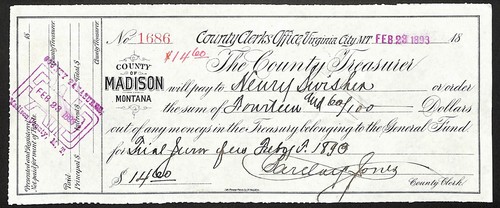 No 1686 County Clerks Office, Virginia City, MT FEB 23 1893 18
$14 60
The County Treasurer
COUNTY
OF
MADISON
MONTANA
will pay to Henry Swisher or order
the sum of Fourteen and 60/100 Dollars
out of any moneys in the Treasury belonging to the General Fund
for Trial Juror Feby 1893
Barclay Jones
$ 14 60 County Clerk
FEB 23
County Treasurer
Paid
Principal $
Total $
Presented and Registered
Not paid for want of funds